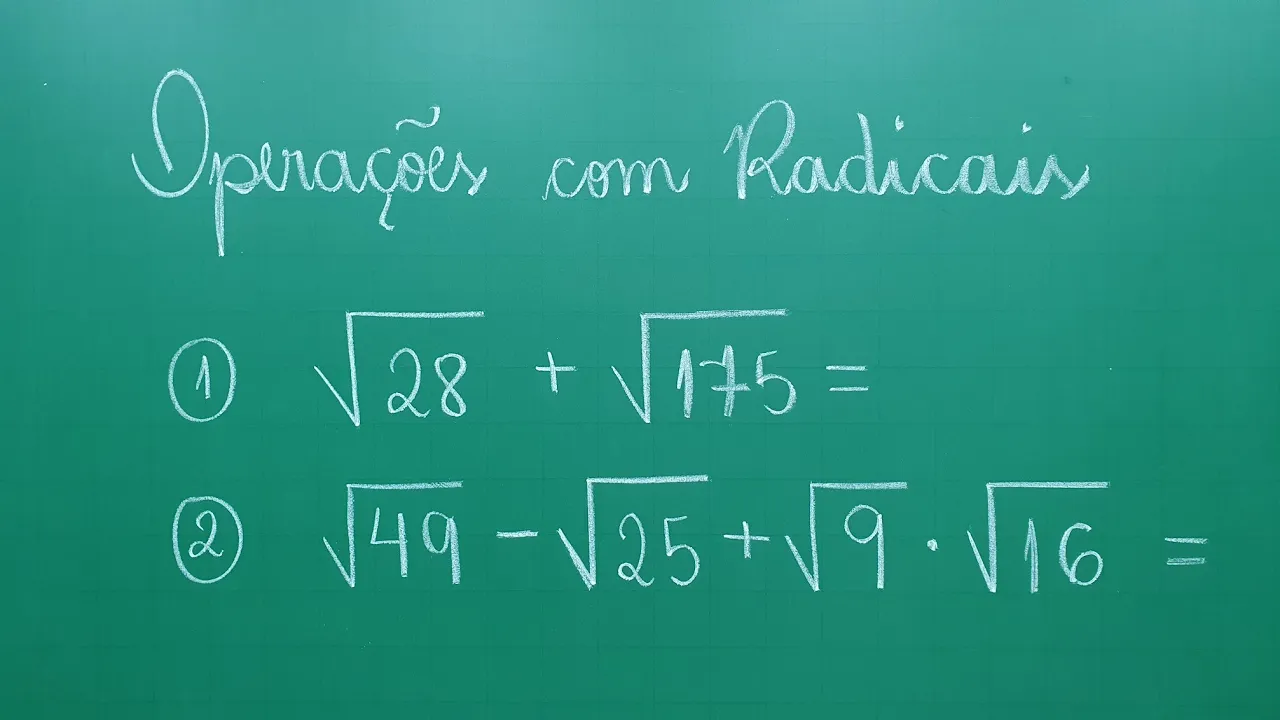 Operações com Radicais
① √28 + √175 =
② √49 - √25 + √9 . √16 =